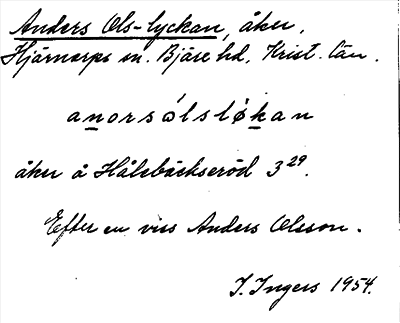 Anders Ols-lyckan, åker,
Hjärnarps sn. Bjäre hd, Krist. län.
anorsólsløkan
åker å Hålebäckseröd 3²⁹.
Efter en viss Anders Olsson.
I. Ingers 1954.